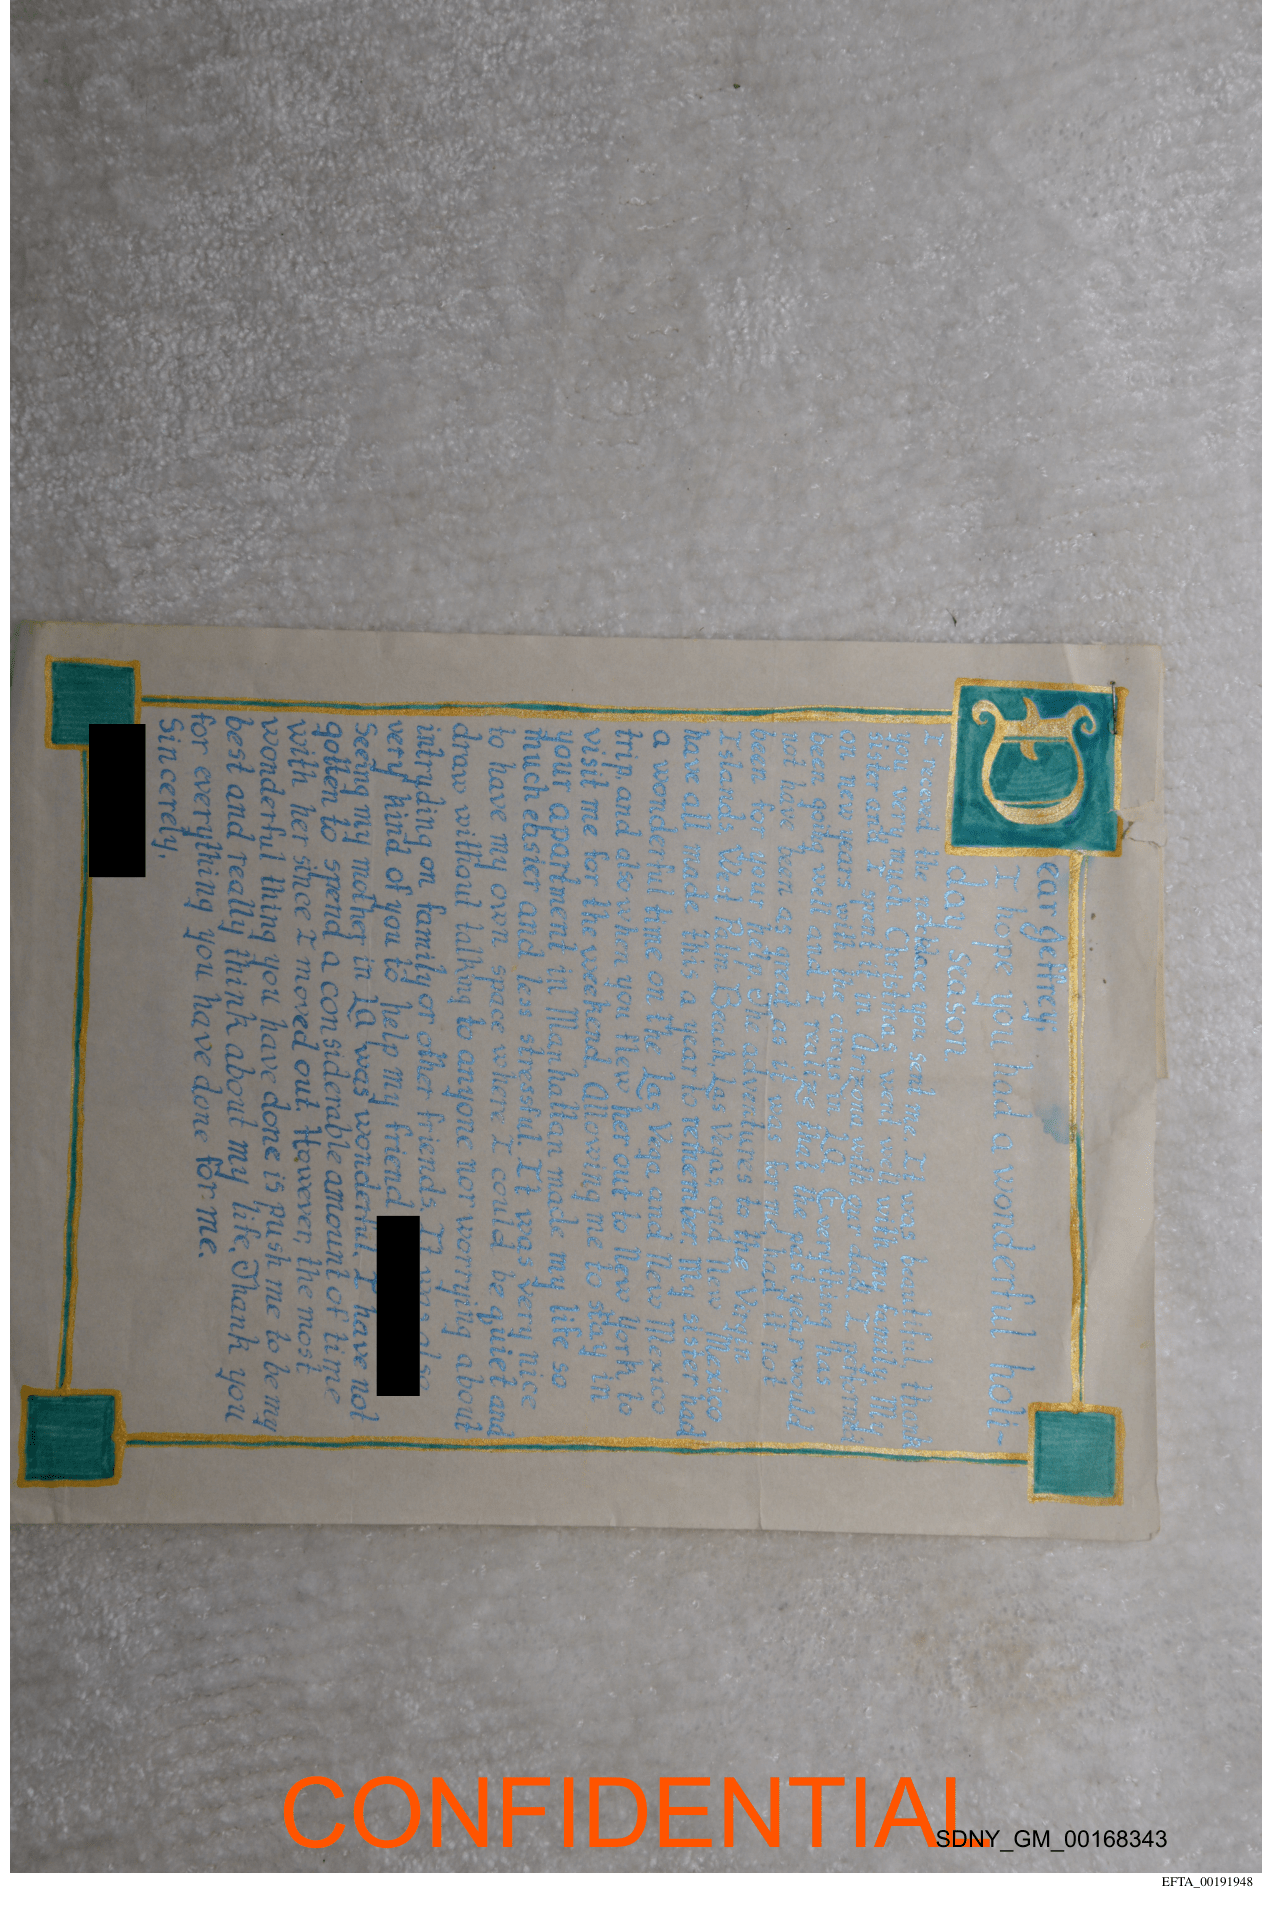 Dear Jeffrey,
I hope you had a wonderful holi-
day season
I received the you sent me. It was beautiful, thank
you very much. Christmas went well with my family. My
sister and I went with our dad. I returned
on new years with be Everything has
been going well and I realize that the past year would
not have been as great as it was for me had it not
been for your help. The adventures to the Virgin
Islands, West Palm Beach, Las Vegas, and New Mexico
have all made this a year to remember. My sister had
a wonderful time on the Las Vegas and New Mexico
trip, and also when you flew her out to New York to
visit me for the weekend. Allowing me to stay in
your apartment in Manhattan made my life so
much easier and less stressful. It was very nice
to have my own space where I could be quiet and
draw without talking to anyone nor worrying about
intruding on family or other friends. It was also
very kind of you to help my friend
Seeing my mother in LA was wonderful. I have not
gotten to spend a considerable amount of time
with her since I moved out. However, the most
wonderful thing you have done is push me to be my
best and really think about my life. Thank you
for everything you have done for me.
Sincerely,
CONFIDENTIAL
SDNY_GM_00168343
EFTA_00191948